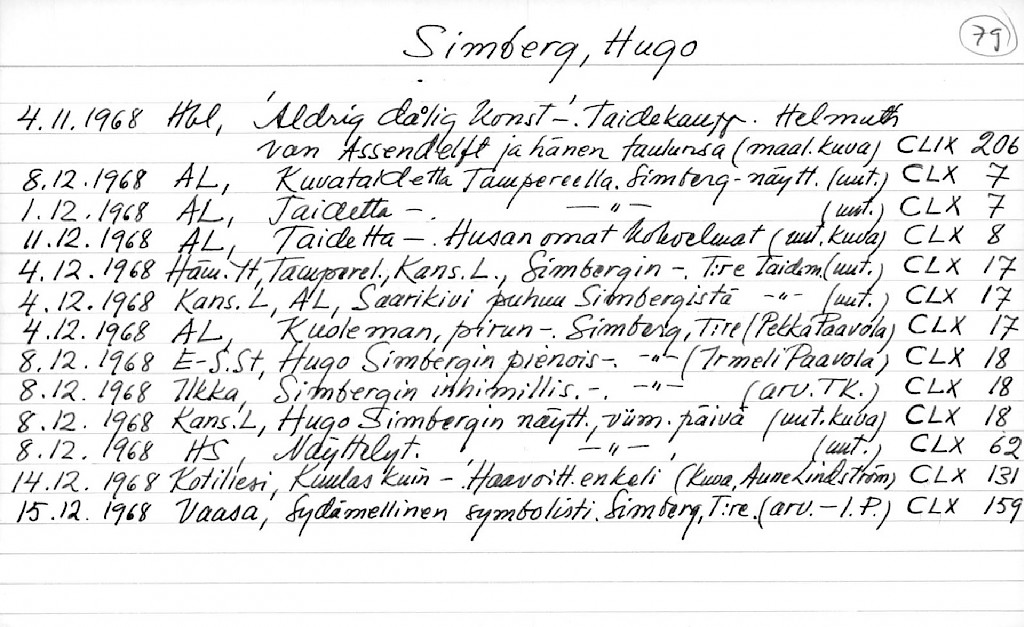 Simberg, Hugo 79
4.11.1968 Hbl, 'Aldrig dålig konst' -. Taidekaupp. Helmuth
van Assendelft ja hänen taulunsa (maal. kuva) CLIX 206
8.12.1968 AL, Kuvataidetta Tampereella. Simberg-näytt. (uut.) CLX 7
1.12.1968 AL, Taidetta -. -"- (uut.) CLX 7
11.12.1968 AL, Taidetta -. Husan omat kokoelmat (uut. kuva) CLX 8
4.12.1968 Häm. :t, Tamperel., Kans. L., Simbergin -. T:re Taidem. (uut.) CLX 17
4.12.1968 Kans. L, AL, Saarikivi puhuu Simbergistä -"- (uut.) CLX 17
4.12.1968 AL, Kuoleman, pirun -. Simberg, T:re (Pekka Paavola) CLX 17
8.12.1968 E-S.St, Hugo Simbergin pienois-. -"- (Irmeli Paavola) CLX 18
8.12.1968 Ilkka, Simbergin inhimillis. -. -"- (arv. TK.) CLX 18
8.12.1968 Kans. L, Hugo Simbergin näytt., viim. päivä (uut. kuva) CLX 18
8.12.1968 HS, Näyttelyt. -"-, (uut.) CLX 62
14.12.1968 Kotiliesi, Kuulas kuin -. Haavoitt. enkeli (kuva, Aune Lindström) CLX 131
15.12.1968 Vaasa, Sydämellinen symbolisti. Simberg, T:re. (arv. - I.P.) CLX 159